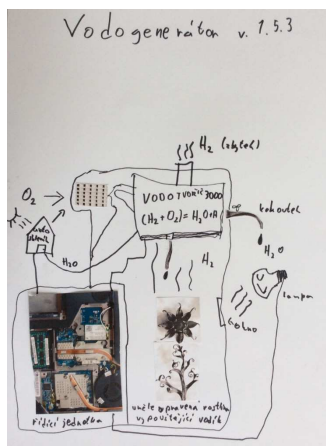 Vodogenerátor v. 1.5.3
H₂ (zbytek)
VODOTVORIČ 3000
(H₂+O₂) = H₂O+A
O₂
kohoutek
H₂O
H₂O
H₂
lampa
řídící jednotka
uměle upravená rostlina
vypouštějící vodík